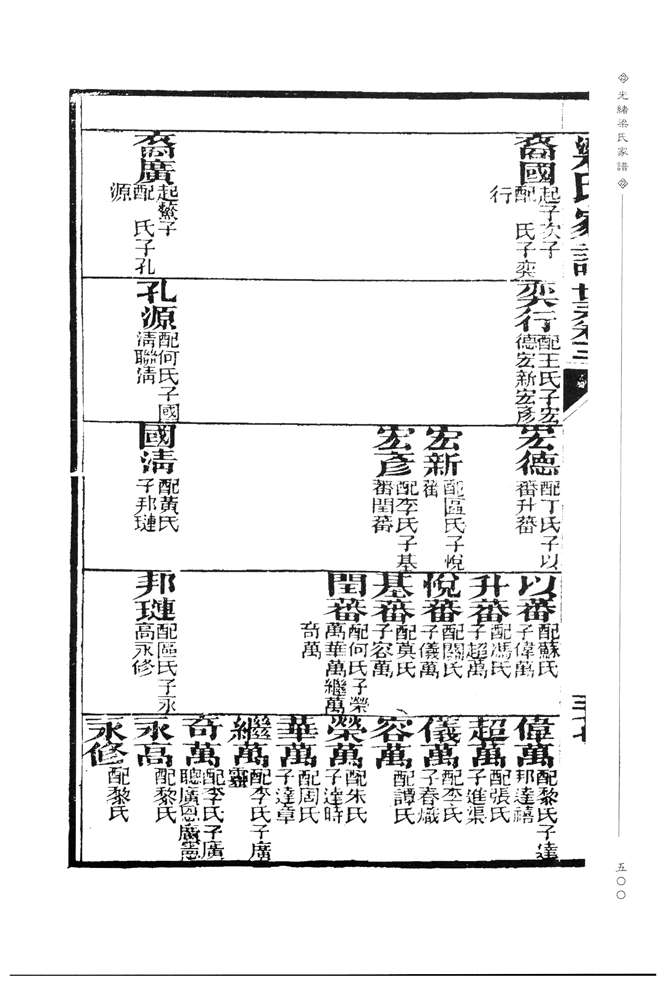 光緒梁氏家譜
五〇〇
梁氏家譜
裔國
起子次子
配 氏子奕
行
裔廣
起鰲子
配 氏子孔
源
奕行
配王氏子宏
德宏新宏彥
孔源
配何氏子國
清聯清
宏德
配丁氏子以
蕃升蕃
宏新
配區氏子悅
蕃
宏彥
配李氏子基
蕃閏蕃
國清
配黃氏
子邦璉
以蕃
配蘇氏
子偉萬
升蕃
配馮氏
子超萬
悅蕃
配關氏
子儀萬
基蕃
配莫氏
子容萬
閏蕃
配何氏子榮
萬華萬繼萬
奇萬
邦璉
配區氏子永
高永修
偉萬
配黎氏子達
邦達禧
超萬
配張氏
子進渠
儀萬
配李氏
子春熾
容萬
配譚氏
榮萬
配朱氏
子達時
華萬
配周氏
子達章
繼萬
配李氏子廣
奇萬
配李氏子廣
聰廣恩廣憲
永高
配黎氏
永修
配黎氏